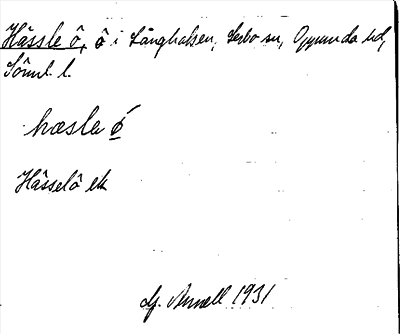 Hässle ö, ö i Långhalsen, Lerbo sn, Oppunda hd,
Söml. l.
hæsle ǿ
Hässelö ek
Annell 1931